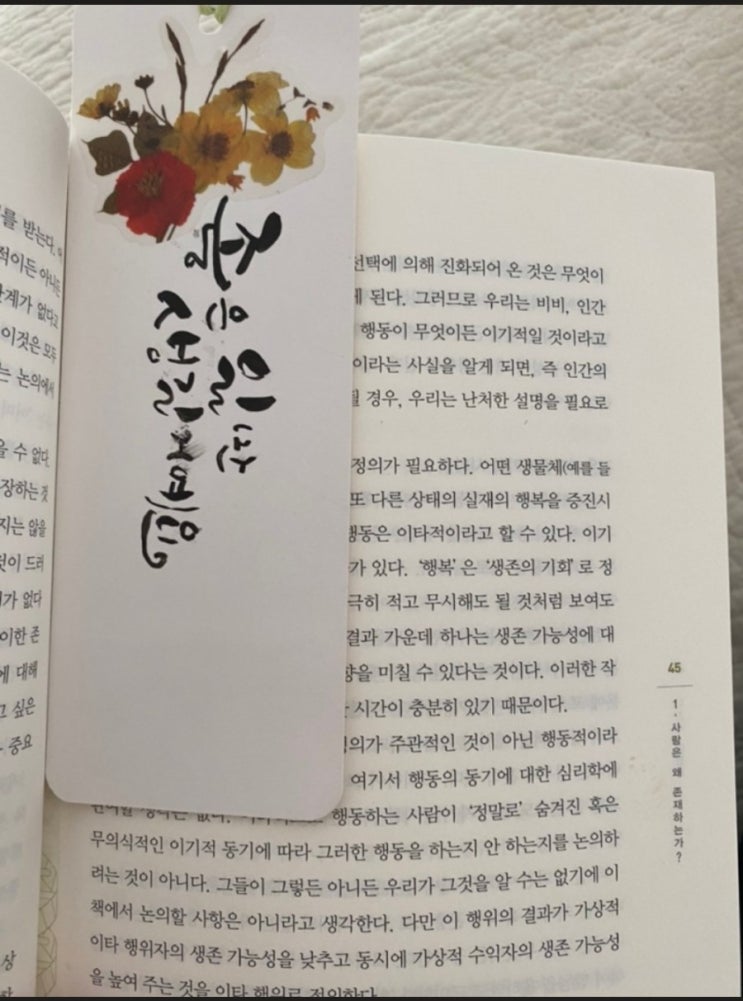 를 받는다.
적이든 아니든
관계가 없다고
이것은 모두
는 논의에서
을 수 없다.
장하는 것
지는 않을
것이 드러
가 없다
이한 존
에 대해
고 싶은
중요
상
좋은 일만
생길거예요
선택에 의해 진화되어 온 것은 무엇이
게 된다. 그러므로 우리는 비비, 인간
행동이 무엇이든 이기적일 것이라고
이라는 사실을 알게 되면, 즉 인간의
될 경우, 우리는 난처한 설명을 필요로
정의가 필요하다. 어떤 생물체(예를 들
또 다른 상태의 실재의 행복을 증진시
행동은 이타적이라고 할 수 있다. 이기
가 있다. ‘행복’은 ‘생존의 기회’로 정
극히 적고 무시해도 될 것처럼 보여도
결과 가운데 하나는 생존 가능성에 대
향을 미칠 수 있다는 것이다. 이러한 작
시간이 충분히 있기 때문이다.
정의가 주관적인 것이 아닌 행동적이라
여기서 행동의 동기에 대한 심리학에
행동하는 사람이 ‘정말로’ 숨겨진 혹은
무의식적인 이기적 동기에 따라 그러한 행동을 하는지 안 하는지를 논의하
려는 것이 아니다. 그들이 그렇든 아니든 우리가 그것을 알 수는 없기에 이
책에서 논의할 사항은 아니라고 생각한다. 다만 이 행위의 결과가 가상적
이타 행위자의 생존 가능성을 낮추고 동시에 가상적 수익자의 생존 가능성
을 높여 주는 것을 이타 행위로 정의한다.
45
1 · 사람은 왜 존재하는가?